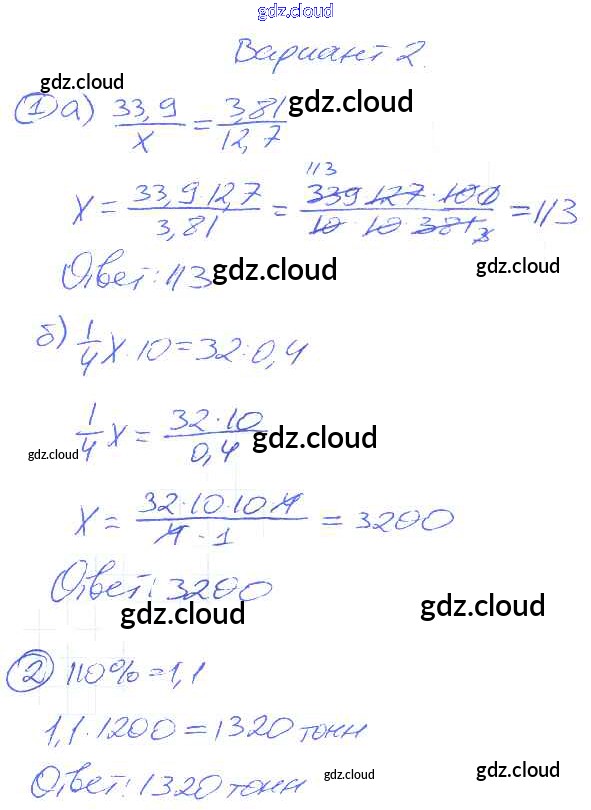 gdz.cloud
Вариант 2.
gdz.cloud
① а) 33,9/x = 3,81/12,7 gdz.cloud
x = 33,9 12,7/3,81 = 113 339 127 · 100/10 · 10 381 3 = 113
Ответ: 113 gdz.cloud gdz.cloud
б) 1/4 x : 10 = 32 : 0,4
1/4 x = 32 · 10/0,4 gdz.cloud
gdz.cloud
x = 32 · 10 · 10 4/4 · 1 = 3200
Ответ: 3200
gdz.cloud gdz.cloud
② 110% = 1,1
1,1 · 1200 = 1320 тонн
Ответ: 1320 тонн gdz.cloud gdz.cloud